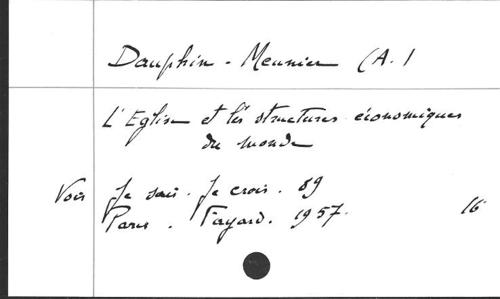 Dauphin - Meunier (A.)
L'Eglise et les structures économiques
du monde
Voir Je sais. Je crois. 89
Paris. Fayard. 1957. 16